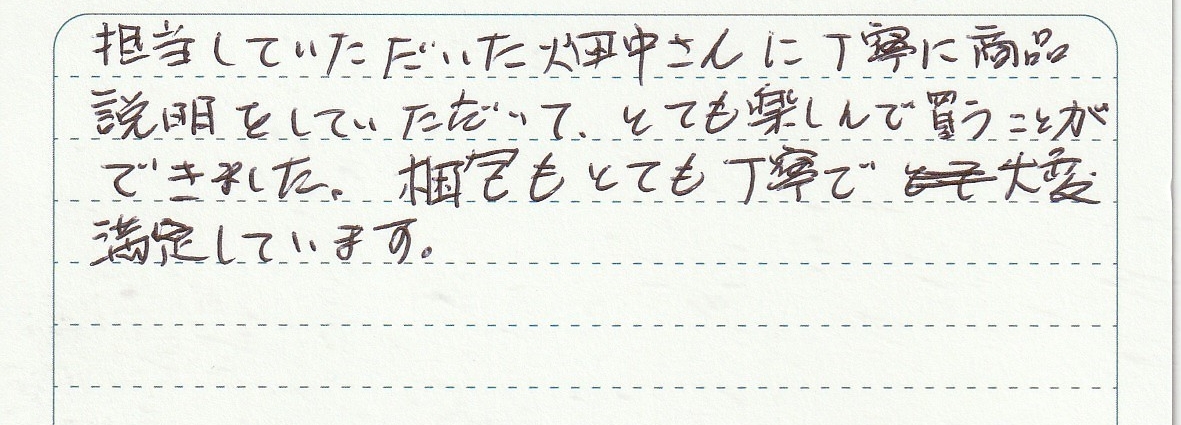 担当していただいた畑中さんに丁寧に商品
説明をしていただいて、とても楽しんで買うことが
できました。梱包もとても丁寧で大変
満足しています。